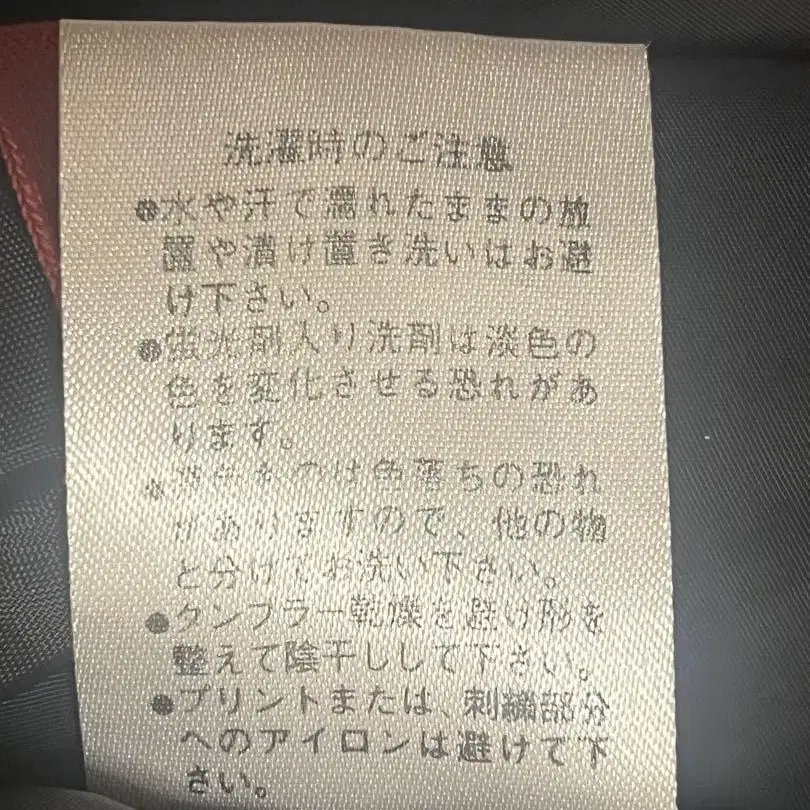 洗濯時のご注意
●水や汗で濡れたままの放
置や漬け置き洗いはお避
け下さい。
●蛍光剤入り洗剤は淡色の
色を変化させる恐れがあ
ります。
●濃色ものは色落ちの恐れ
がありますので、他の物
と分けてお洗い下さい。
●タンブラー乾燥を避け形を
整えて陰干しして下さい。
●プリントまたは、刺繍部分
へのアイロンは避けて下
さい。